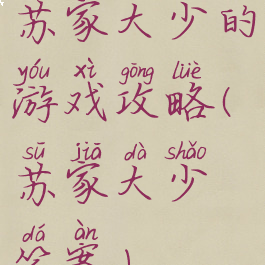 苏家大少的
yóu xì gōng lüè
游戏攻略(
sū jiā dà shǎo
苏家大少
dá àn
答案)